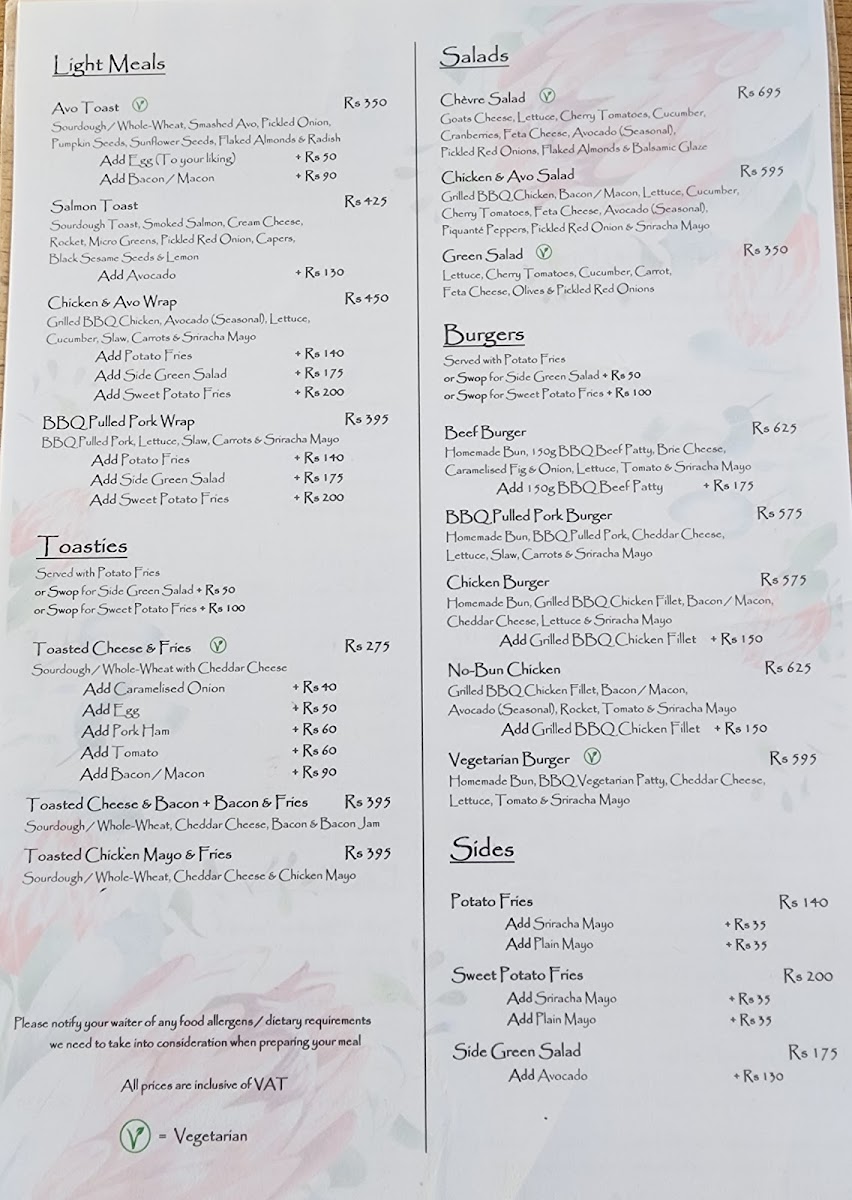 Light Meals
Avo Toast Rs 350
Sourdough / Whole-Wheat, Smashed Avo, Pickled Onion,
Pumpkin Seeds, Sunflower Seeds, Flaked Almonds & Radish
Add Egg (To your liking) + Rs 50
Add Bacon / Macon + Rs 90
Salmon Toast Rs 425
Sourdough Toast, Smoked Salmon, Cream Cheese,
Rocket, Micro Greens, Pickled Red Onion, Capers,
Black Sesame Seeds & Lemon
Add Avocado + Rs 130
Chicken & Avo Wrap Rs 450
Grilled BBQ Chicken, Avocado (Seasonal), Lettuce,
Cucumber, Slaw, Carrots & Sriracha Mayo
Add Potato Fries + Rs 140
Add Side Green Salad + Rs 175
Add Sweet Potato Fries + Rs 200
BBQ Pulled Pork Wrap Rs 395
BBQ Pulled Pork, Lettuce, Slaw, Carrots & Sriracha Mayo
Add Potato Fries + Rs 140
Add Side Green Salad + Rs 175
Add Sweet Potato Fries + Rs 200
Toasties
Served with Potato Fries
or Swop for Side Green Salad + Rs 50
or Swop for Sweet Potato Fries + Rs 100
Toasted Cheese & Fries Rs 275
Sourdough / Whole-Wheat with Cheddar Cheese
Add Caramelised Onion + Rs 40
Add Egg + Rs 50
Add Pork Ham + Rs 60
Add Tomato + Rs 60
Add Bacon / Macon + Rs 90
Toasted Cheese & Bacon + Bacon & Fries Rs 395
Sourdough / Whole-Wheat, Cheddar Cheese, Bacon & Bacon Jam
Toasted Chicken Mayo & Fries Rs 395
Sourdough / Whole-Wheat, Cheddar Cheese & Chicken Mayo
Please notify your waiter of any food allergens / dietary requirements
we need to take into consideration when preparing your meal
All prices are inclusive of VAT
V = Vegetarian
Salads
Chèvre Salad Rs 695
Goats Cheese, Lettuce, Cherry Tomatoes, Cucumber,
Cranberries, Feta Cheese, Avocado (Seasonal),
Pickled Red Onions, Flaked Almonds & Balsamic Glaze
Chicken & Avo Salad Rs 595
Grilled BBQ Chicken, Bacon / Macon, Lettuce, Cucumber,
Cherry Tomatoes, Feta Cheese, Avocado (Seasonal),
Piquanté Peppers, Pickled Red Onion & Sriracha Mayo
Green Salad Rs 350
Lettuce, Cherry Tomatoes, Cucumber, Carrot,
Feta Cheese, Olives & Pickled Red Onions
Burgers
Served with Potato Fries
or Swop for Side Green Salad + Rs 50
or Swop for Sweet Potato Fries + Rs 100
Beef Burger Rs 625
Homemade Bun, 150g BBQ Beef Patty, Brie Cheese,
Caramelised Fig & Onion, Lettuce, Tomato & Sriracha Mayo
Add 150g BBQ Beef Patty + Rs 175
BBQ Pulled Pork Burger Rs 575
Homemade Bun, BBQ Pulled Pork, Cheddar Cheese,
Lettuce, Slaw, Carrots & Sriracha Mayo
Chicken Burger Rs 575
Homemade Bun, Grilled BBQ Chicken Fillet, Bacon / Macon,
Cheddar Cheese, Lettuce & Sriracha Mayo
Add Grilled BBQ Chicken Fillet + Rs 150
No-Bun Chicken Rs 625
Grilled BBQ Chicken Fillet, Bacon / Macon,
Avocado (Seasonal), Rocket, Tomato & Sriracha Mayo
Add Grilled BBQ Chicken Fillet + Rs 150
Vegetarian Burger Rs 595
Homemade Bun, BBQ Vegetarian Patty, Cheddar Cheese,
Lettuce, Tomato & Sriracha Mayo
Sides
Potato Fries Rs 140
Add Sriracha Mayo + Rs 35
Add Plain Mayo + Rs 35
Sweet Potato Fries Rs 200
Add Sriracha Mayo + Rs 35
Add Plain Mayo + Rs 35
Side Green Salad Rs 175
Add Avocado + Rs 130